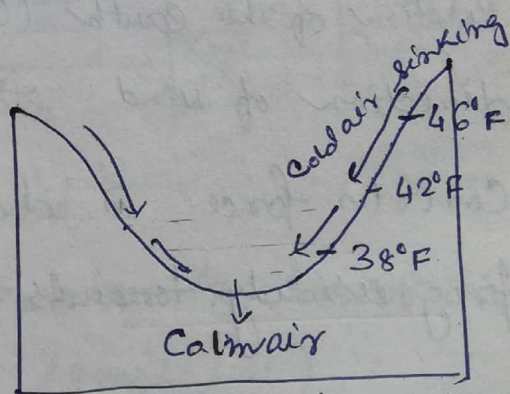 Cold air sinking
46°F
42°F
38°F
Calm air